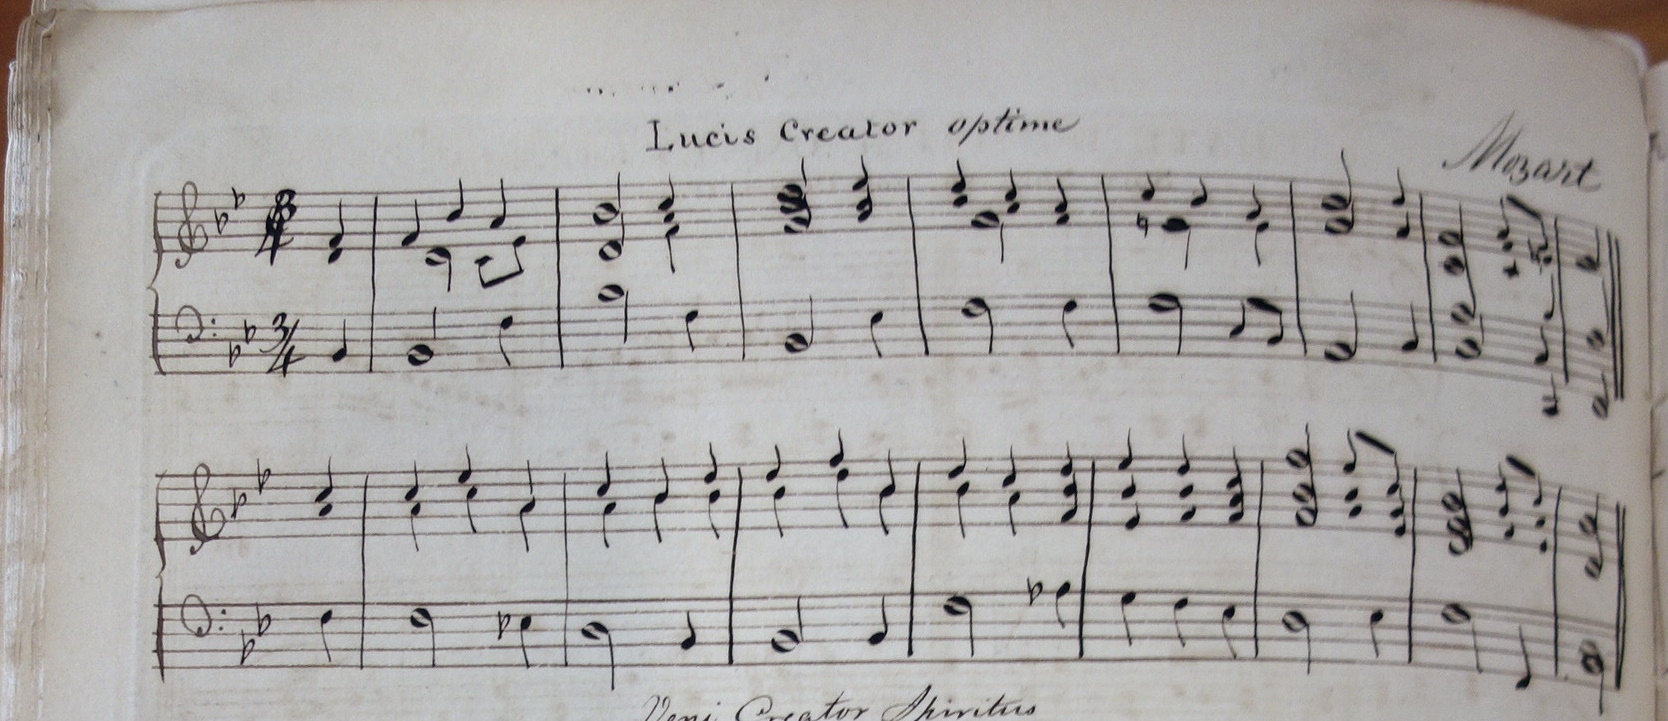 Lucis Creator optime
Mozart
3/4
Veni Creator Spiritus